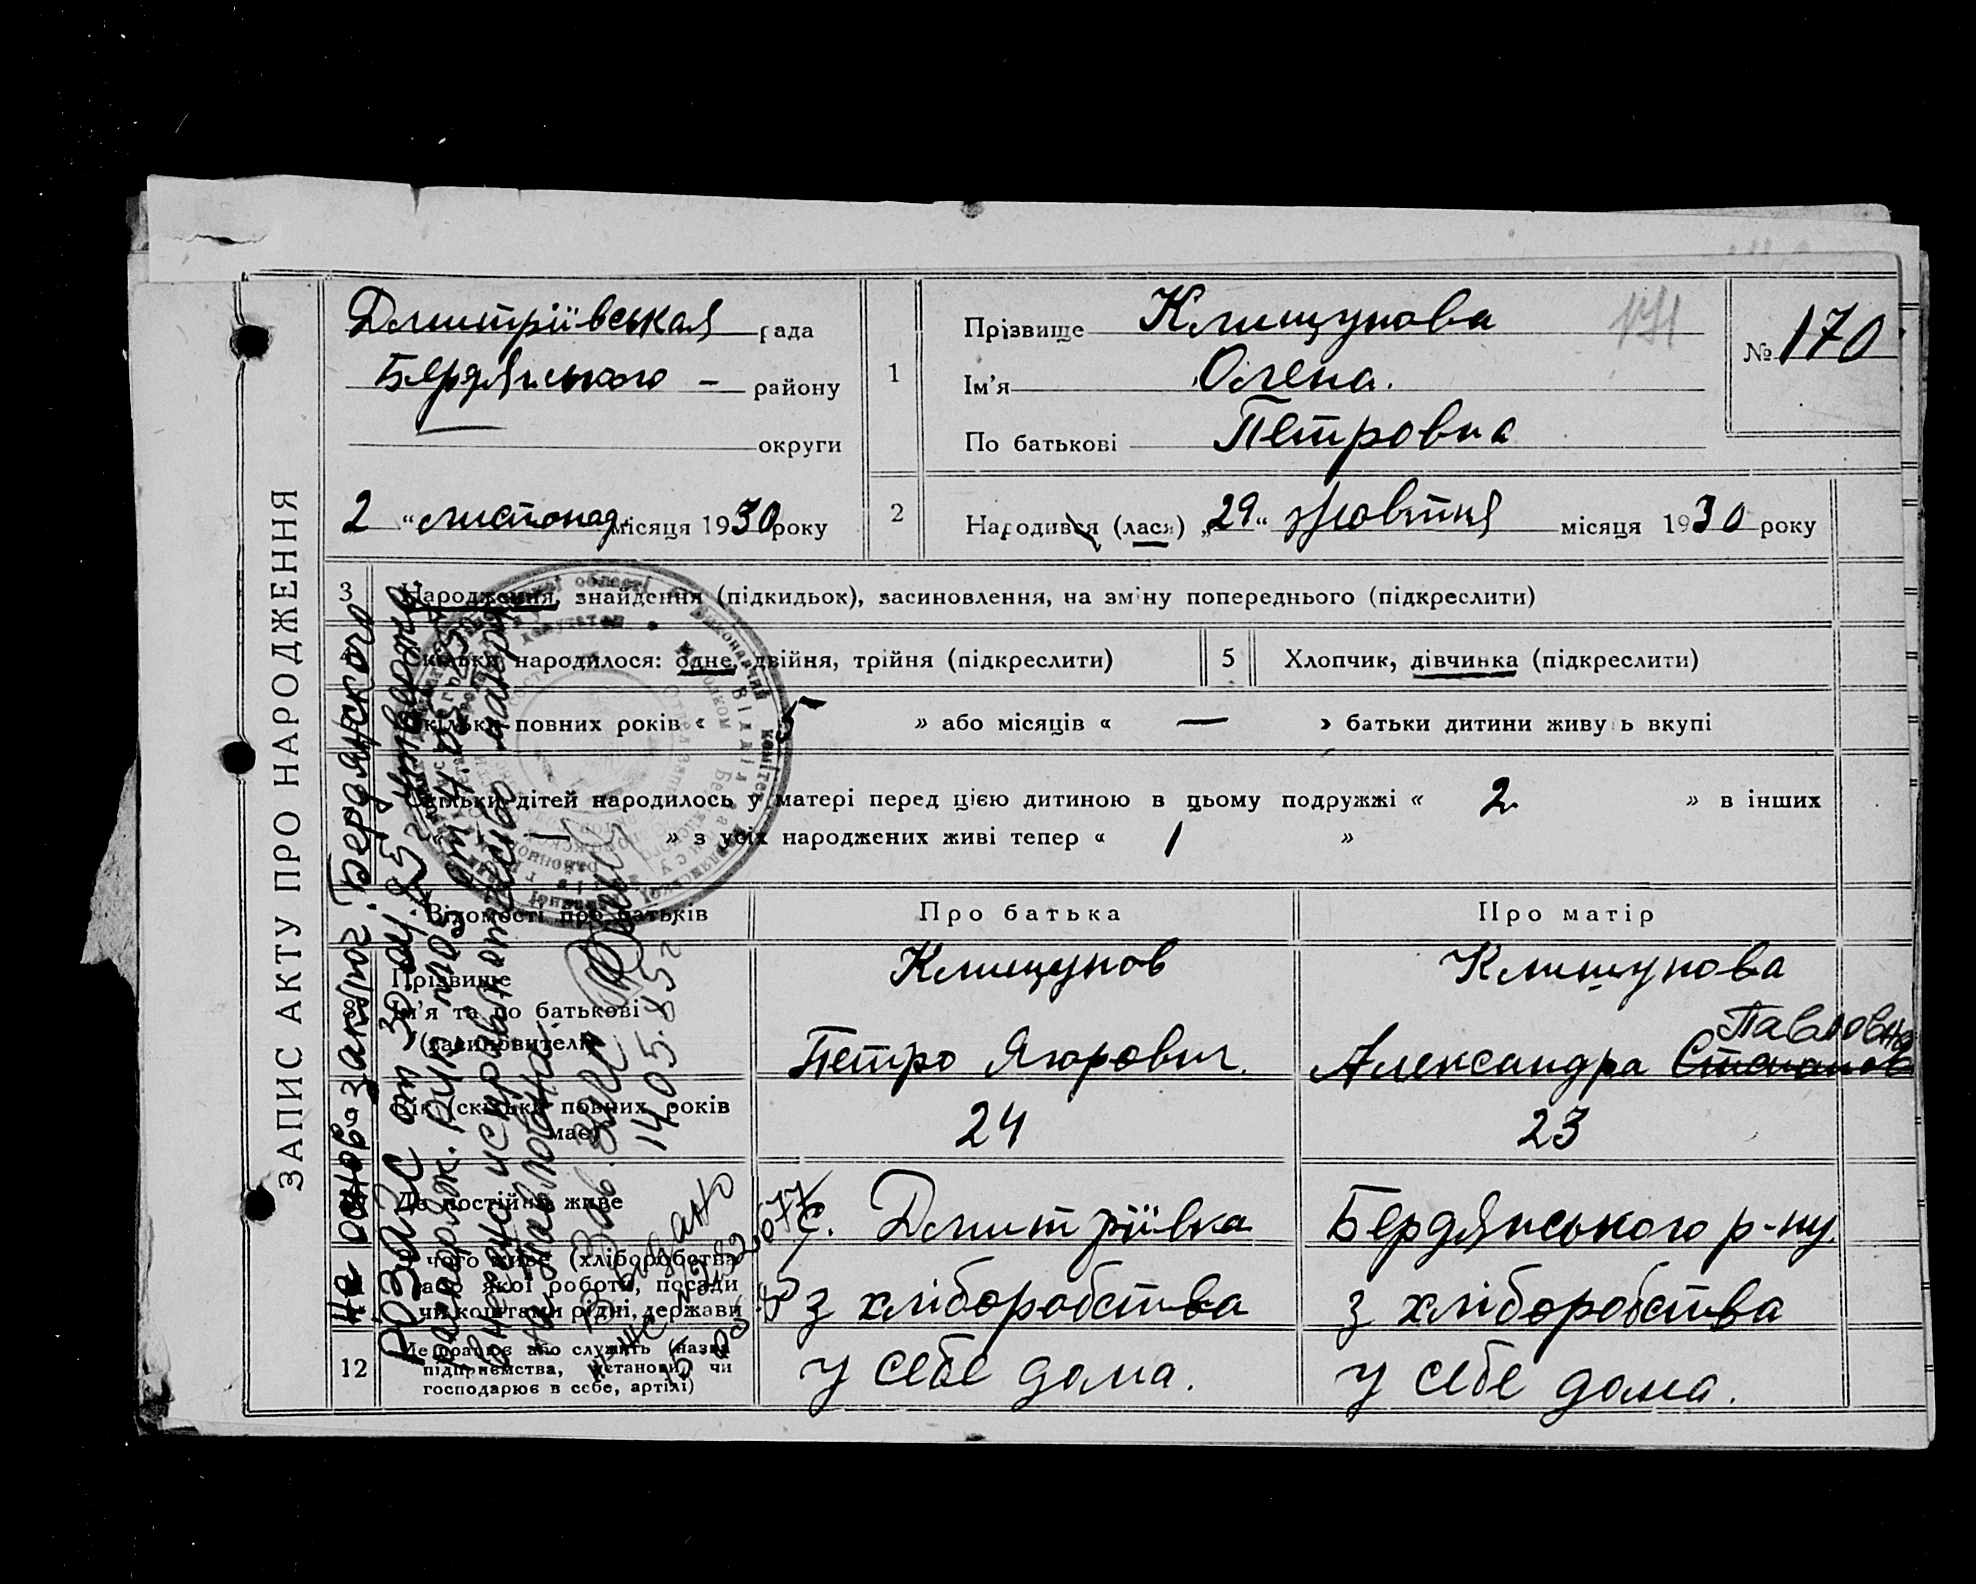 ЗАПИС АКТУ ПРО НАРОДЖЕННЯ
Дмитріївськая рада
Бердянського — району
округи
2 „ листопад місяця 1930 року
1
Прізвище Клищунова
Ім'я Олена.
По батькові Петровна
171
№ 170
2
Народився (лася) „29“ жовтня місяця 1930 року
3
Народження, знайдення (підкидьок), засиновлення, на зміну попереднього (підкреслити)
народилося: одне, двійня, трійня (підкреслити)
5
Хлопчик, дівчинка (підкреслити)
повних років « 5 » або місяців « — » батьки дитини живуть вкупі
Скільки дітей народилось у матері перед цією дитиною в цьому подружжі « 2 » в інших
« — » з усіх народжених живі тепер « 1 »
Відомості про батьків
Про батька
Про матір
8
Прізвище
Ім'я та по батькові
(засиновителів)
Клищунов
Петро Ягорович.
Клищунова
Павловна
Александра
Вік (скільки повних років
має)
24
23
Де постійно живе
с. Дмитріївка
Бердянського р-ну
чого живе (хліборобства
або якої роботи, посади
чи коштами рідні, держави
з хліборобства
з хліборобства
12
Де працює або служить (назва
підприємства, установи, чи
господарює в себе, артілі)
у себе дома.
у себе дома.
На основ. заключ. Бердянского
РОЗАГС от 30 ап. 85 г утвержд
запорож. под
Внесено исправл отчество матери
на Павловна.
Зав. ЗАГС
14.05.85 г